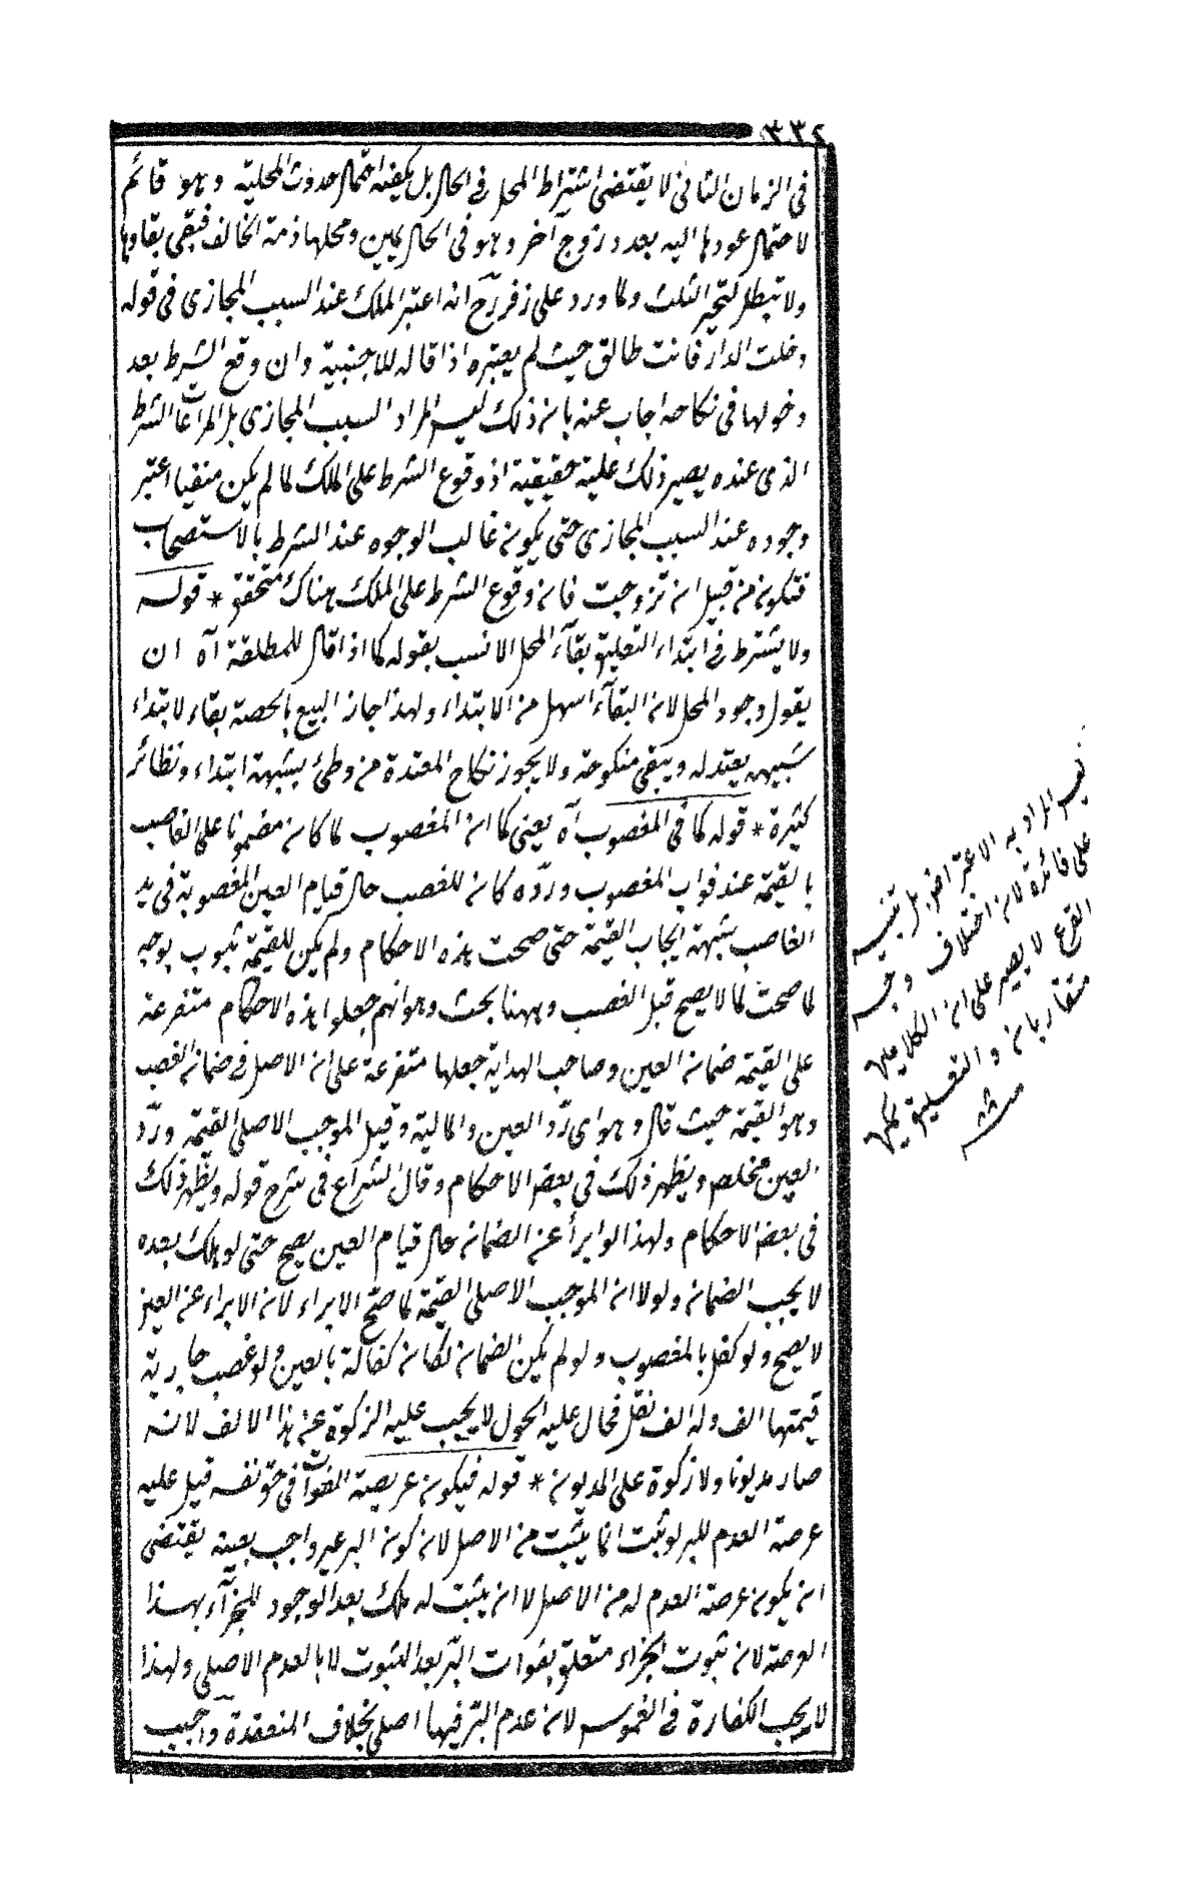 ٣٣٤
فى الزمان الثانى لا يقتضى اشتراط المحل فى الحال بل يكفيه احتمال حدوث المحلية وهو قائم
لاحتمال عودها اليه بعد زوج آخر وهو فى الحال يمين ومحلها ذمة الحالف فيبقى بقاوها
ولا تبطل بتنجيز الثلث ولما ورد على زفر رح انه اعتبر الملك عند السبب المجازى فى قوله
دخلت الدار فانت طالق حيث لم يعتبره اذا قاله للاجنبية وان وقع الشرط بعد
دخولها فى نكاحه اجاب عنه بان ذلك ليس المراد السبب المجازى بل المراعات الشرط
الذى عنده يصير ذلك علية حقيقية اذ وقوع الشرط على الملك لما لم يكن منفيا اعتبر
وجوده عند السبب المجازى حتى يكون غالب الوجوه عند الشرط بالاستصحاب
فتكون من قبيل ان تزوجت فان وقوع الشرط على الملك هناك متحقق * قوله
ولا يشترط فى ابتداء التعليق بقآء المحل الانسب بقوله كما اذا قال للمطلقة آه ان
يقول وجود المحل لان البقآء اسهل من الابتداء ولهذا جاز البيع بالحصة بقاء لا بتداء
شبيهه يعتد له ويبقى منكوحة ولا يجوز نكاح المعتدة من وطئ بشبهة ابتداء ونظائر
كثيرة * قوله كما فى المغصوب آه يعنى كما ان المغصوب لما كان مضمونا على الغاصب
بالقيمة عند فواب المغصوب ورده كان للغصب حال قيام العين المغصوبة فى يد
الغاصب شبهة ايجاب القيمة حتى صحت هذه الاحكام ولم يكن للقيمة ثبوب بوجه
لما صحت كما لا يصح قبل الغصب وههنا بحث وهو انهم جعلوا هذه الاحكام متفرعة
على القيمة ضمان العين وصاحب الهداية جعلها متفرعة على ان الاصل فى ضمان الغصب
وهو القيمة حيث قال وهو اى رد العين والمالية وقيل الموجب الاصلى القيمة وردّ
العين مخلص ويظهر ذلك فى بعض الاحكام وقال الشراح فى شرح قوله ويظهر ذلك
فى بعض الاحكام ولهذا لو ابرأ عن الضمان حال قيام العين يصح حتى لو هلك بعده
لا يجب الضمان ولولا ان الموجب الاصلى القيمة لما صح الابراء لان الابراء عن العين
لا يصح ولو كفل بالمغصوب ولو لم يكن الضمان لكان كفالة بالعين ولو غصب جارية
قيمتها الف وله الف نقل فحال عليه الحول لا يجب عليه الزكوة عن هذا الالف لانه
صار مديونا ولا زكوة على المديون * قوله فيكون عريصة الفوات فى حق نفسه قيل عليه
عرصة العدم للبر لو ثبت انما يثبت من الاصل لان كون البر غير واجب بعينه يقتضى
ان يكون عرصة العدم له من الاصل لا ان يثبت له ملك بعد الوجود للجزآء بهذا
العرصة لان ثبوت الجزاء متعلق بفوات البر بعد الثبوت لا بالعدم الاصلى ولهذا
لا يجب الكفارة فى الغموس لان عدم البر فيها اصلى بخلاف المنعقدة واجيب
ليس المراد به الاعتراض بل تنبيه
على فائدة لان اختلاف وجه
الفرع لا يصير على ان الكلامين
متقاربان والتعليق يمين
منه